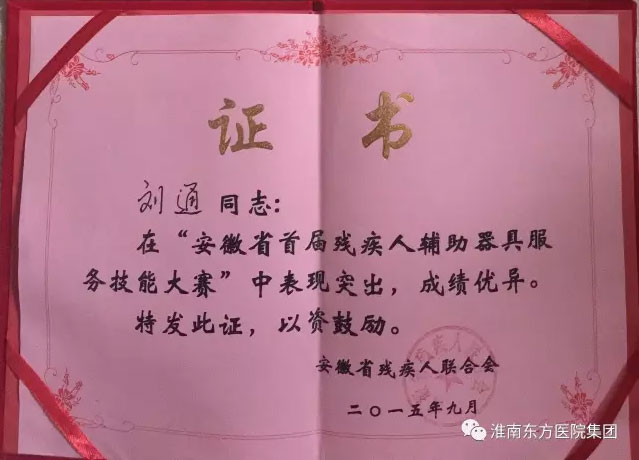 证 书
刘通 同志:
在“安徽省首届残疾人辅助器具服
务技能大赛”中表现突出，成绩优异。
特发此证，以资鼓励。
安徽省残疾人联合会
二〇一五年九月
淮南东方医院集团